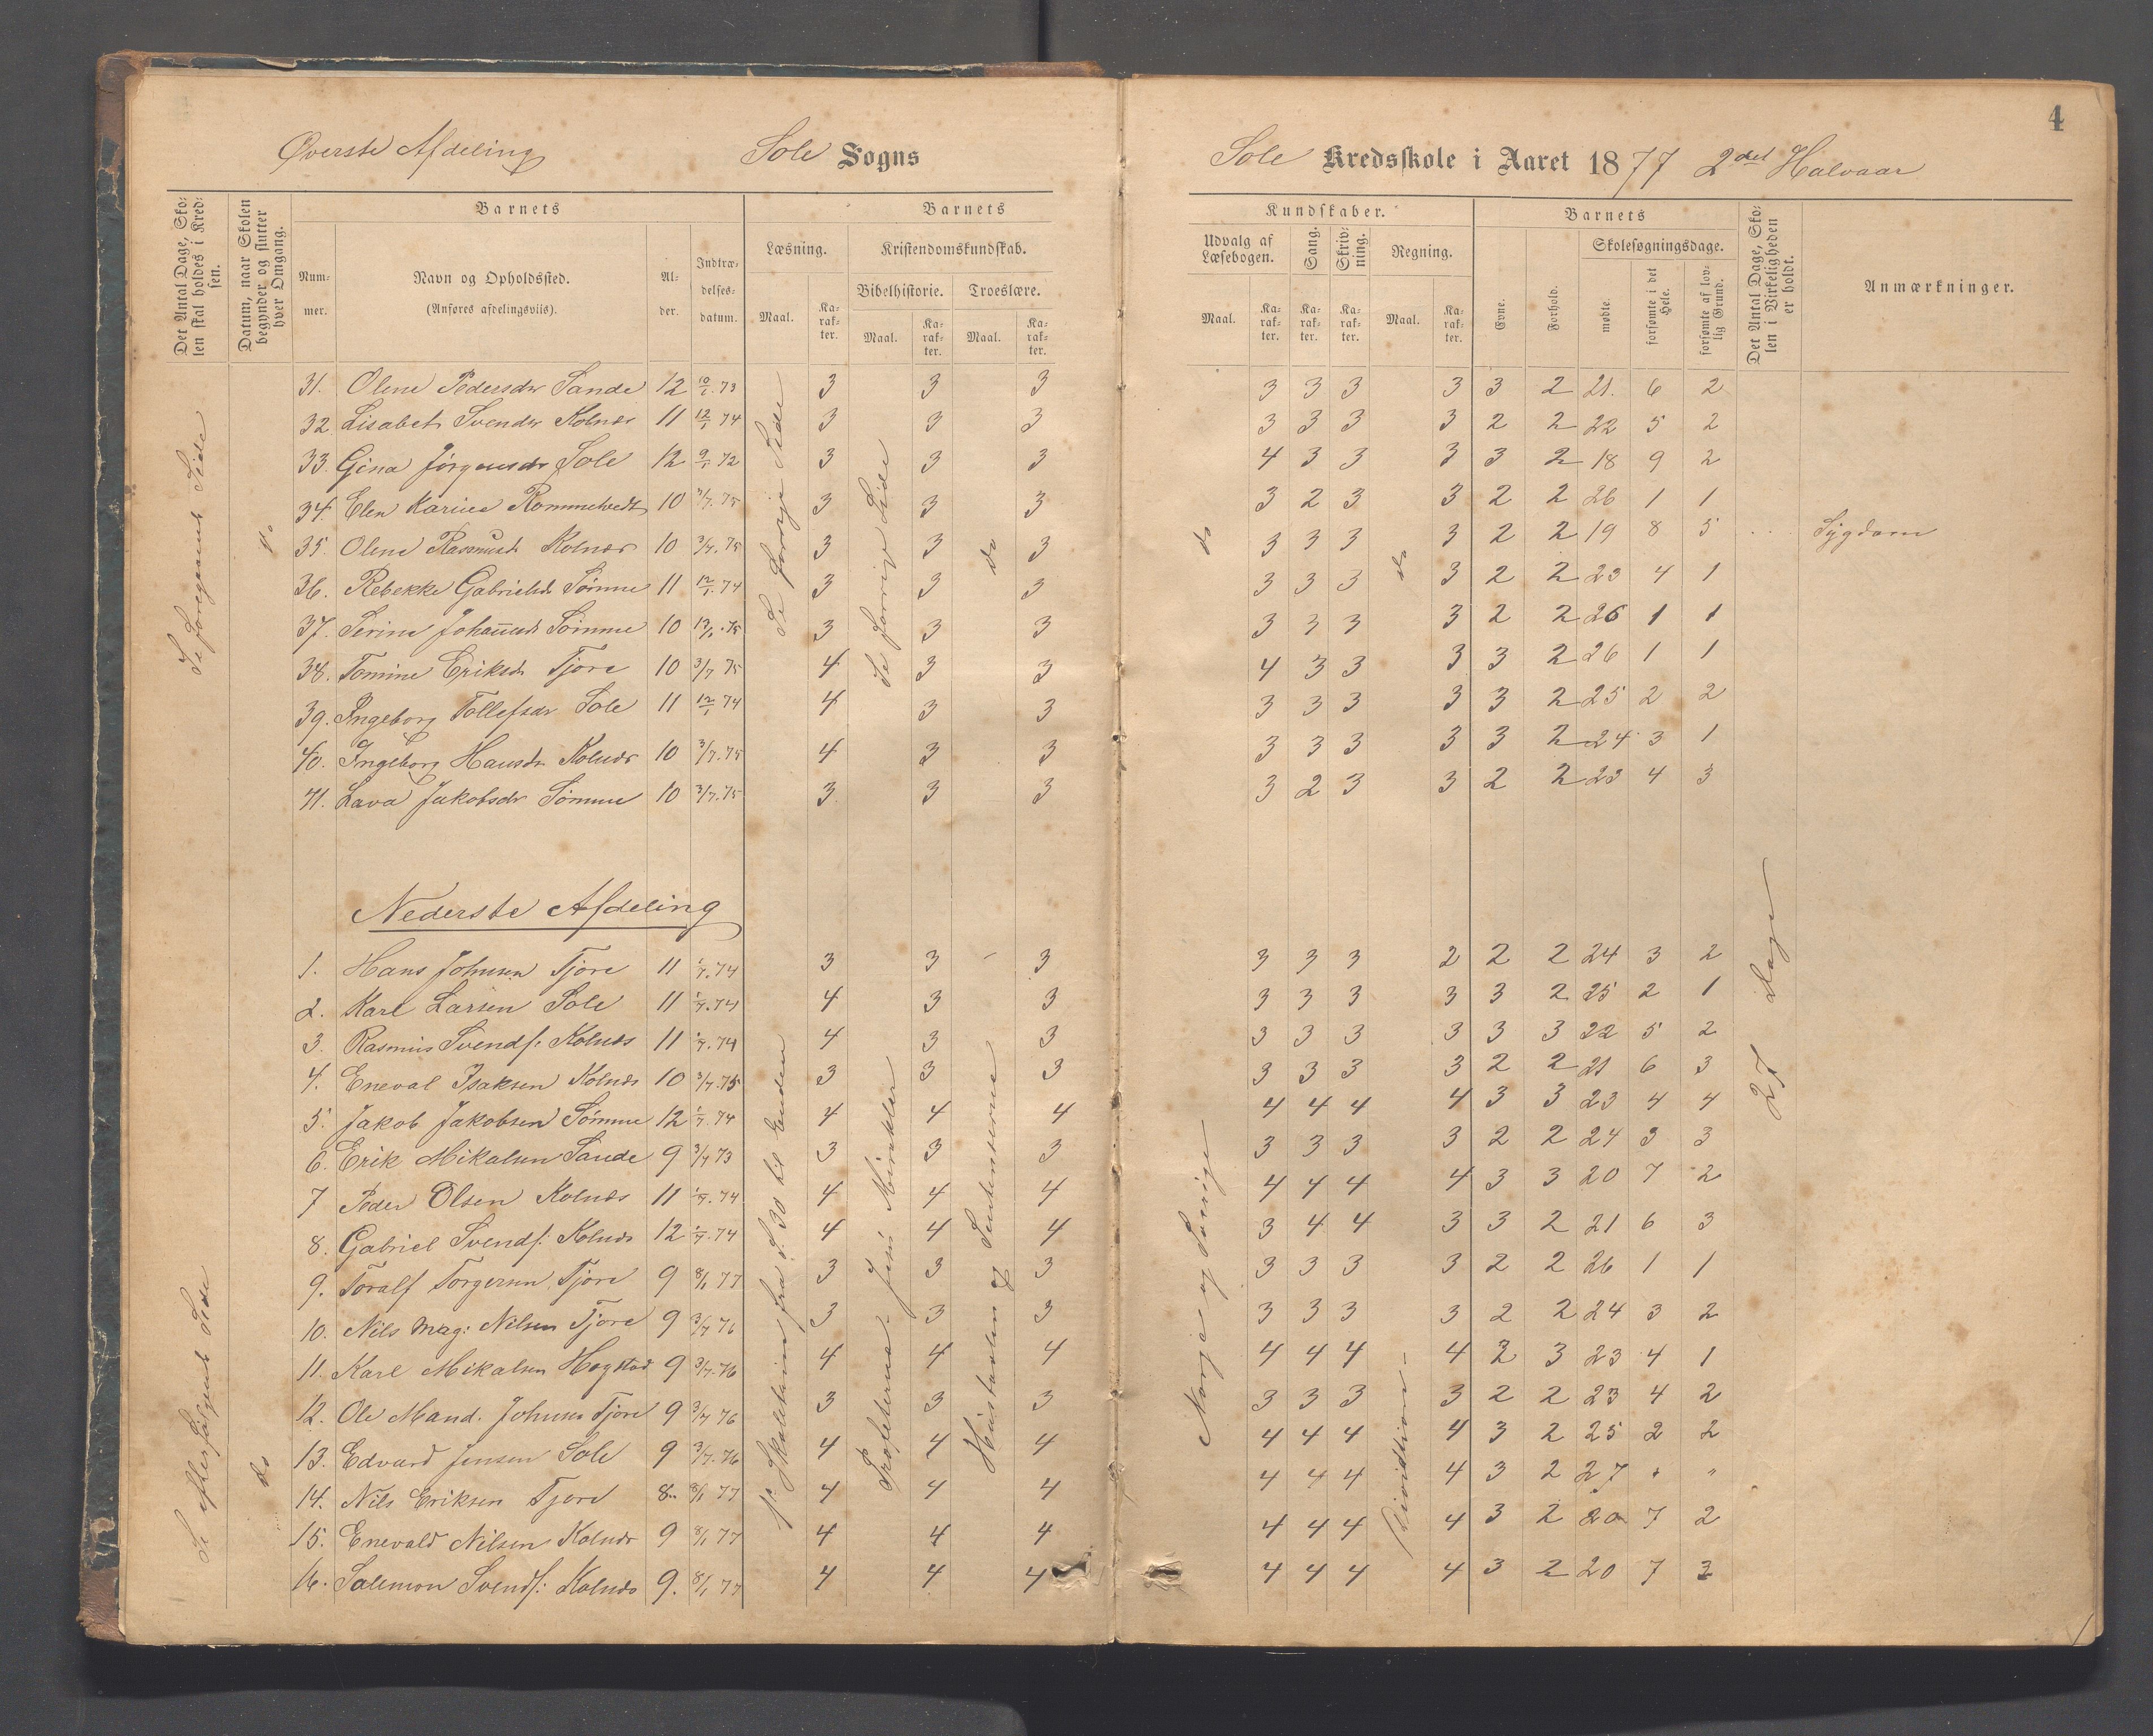 4
Øverste Afdeling Sole Sogns
Sole Kredsskole i Aaret 1877 2det Halvaar
Det Antal Dage, Skolen skal holdes i Kredsen.
Datum, naar Skolen begynder og slutter hver Omgang.
Barnets
Nummer.
Navn og Opholdssted.
(Anføres afdelingsviis).
Alder.
Indtrædelsesdatum.
Barnets
Læsning.
Kristendomskundskab.
Bibelhistorie. Troeslære.
Maal. Karakter. Maal. Karakter. Maal. Karakter.
Kundskaber.
Udvalg af Læsebogen. Sang. Skrivning. Regning.
Maal. Karakter. Karakter. Karakter. Maal. Karakter.
Barnets
Evne. Forhold.
Skolesøgningsdage.
mødte. forsømte i det Hele. forsømte af lovlig Grund.
Det Antal Dage, Skolen i Virkeligheden er holdt.
Anmærkninger.
31. Olene Pedersdr Sande 12 10/1. 73 3 3 3 3 3 3 3 3 2 21. 6 2
32 Lisabet Svendsr Kolnes 11 12/1 74 3 3 3 3 3 3 3 2 2 22 5 2
33. Gina Jørgensdr Sole 12 9/1 72 3 3 3 4 3 3 3 3 2 18 9 2
34. Elen Karine Rommetvedt 10 3/7. 75 3 3 3 3 2 3 3 2 2 26 1 1
35. Olene Rasmusd. Kolnes 10 3/7. 75 3 3 3 3 3 3 3 2 2 19 8 5 Sygdom
36. Rebekke Gabrielsd. Sømme 11 12/1. 74 3 3 3 3 3 3 3 2 2 23 4 1
37. Serine Johannesd. Sømme 10 13/1. 75 3 3 3 3 3 3 3 2 2 26 1 1
38. Tomine Eriksd. Tjore 10 3/7 75 4 3 3 4 3 3 3 3 2 26 1 1
39. Ingeborg Tollefsdr Sole 11 12/1 74 4 3 3 3 3 3 3 3 2 25 2 2
40. Ingeborg Hansdr Kolnes 10 3/7. 75 4 3 3 3 3 3 3 3 2 24 3 1
41. Lava Jakobsdr Sømme 10 3/7. 75 3 3 3 3 2 3 3 2 2 23 4 3
Se Foregaaende Side
do
Se forrige Side
Se forrige Side
do
do
do
Nederste Afdeling
1. Hans Johnsen Tjore 11 1/7. 74 3 3 3 3 3 3 2 2 2 24 3 2
2. Karl Larsen Sole 11 1/7. 74 4 3 3 3 3 3 3 3 2 25 2 1
3. Rasmus Svends: Kolnes 11 1/7. 74 4 3 3 3 3 3 3 3 3 22 5 2
4. Eneval Isaksen Kolnes 10 3/7. 75 3 3 3 3 3 3 3 2 2 21 6 3
5. Jakob Jakobsen Sømme 12 1/7. 74 4 4 4 4 4 4 4 3 3 23 4 4
6. Erik Mikalsen Sande 9 3/7 73 3 3 3 3 3 3 3 2 2 24 3 3
7 Peder Olsen Kolnes 11 1/7. 74 4 4 4 4 4 4 4 3 3 20 7 2
8. Gabriel Svends: Kolnes 12 1/7. 74 4 4 4 3 4 4 3 3 2 21 6 3
9. Toralf Torgersen Tjore 9 8/1 77 3 3 3 3 3 3 3 2 2 26 1 1
10. Nils Mag: Nilsen Tjore 9 3/7 76 3 3 3 3 3 3 3 2 2 24 3 2
11. Karl Mikalsen Hogstad 9 3/7. 76 4 4 4 4 4 4 4 2 3 23 4 1
12. Ole Mand. Johnsen Tjore 9 3/7 76 3 3 3 3 3 3 3 2 2 23 4 2
13. Edvard Jensen Sole 9 3/7. 76 4 4 4 4 4 4 4 3 2 25 2 2
14. Nils Eriksen Tjore 8.. 8/1 77 4 4 4 4 4 4 4 3 2 27 " "
15. Enevald Nilsen Kolnes 9 8/1 77 4 4 4 4 4 4 4 3 2 20 7 2
16. Salemon Svends: Kolnes 9. 8/1 77 4 4 4 4 4 4 4 3 2 20 7 3
Se efterfølgende Side
do
fra S. 30 til Enden
Profeterne - Jesu Mirakler
Huustavlen og Sentenserne
Norge og Sverige
Division -
27 Dage